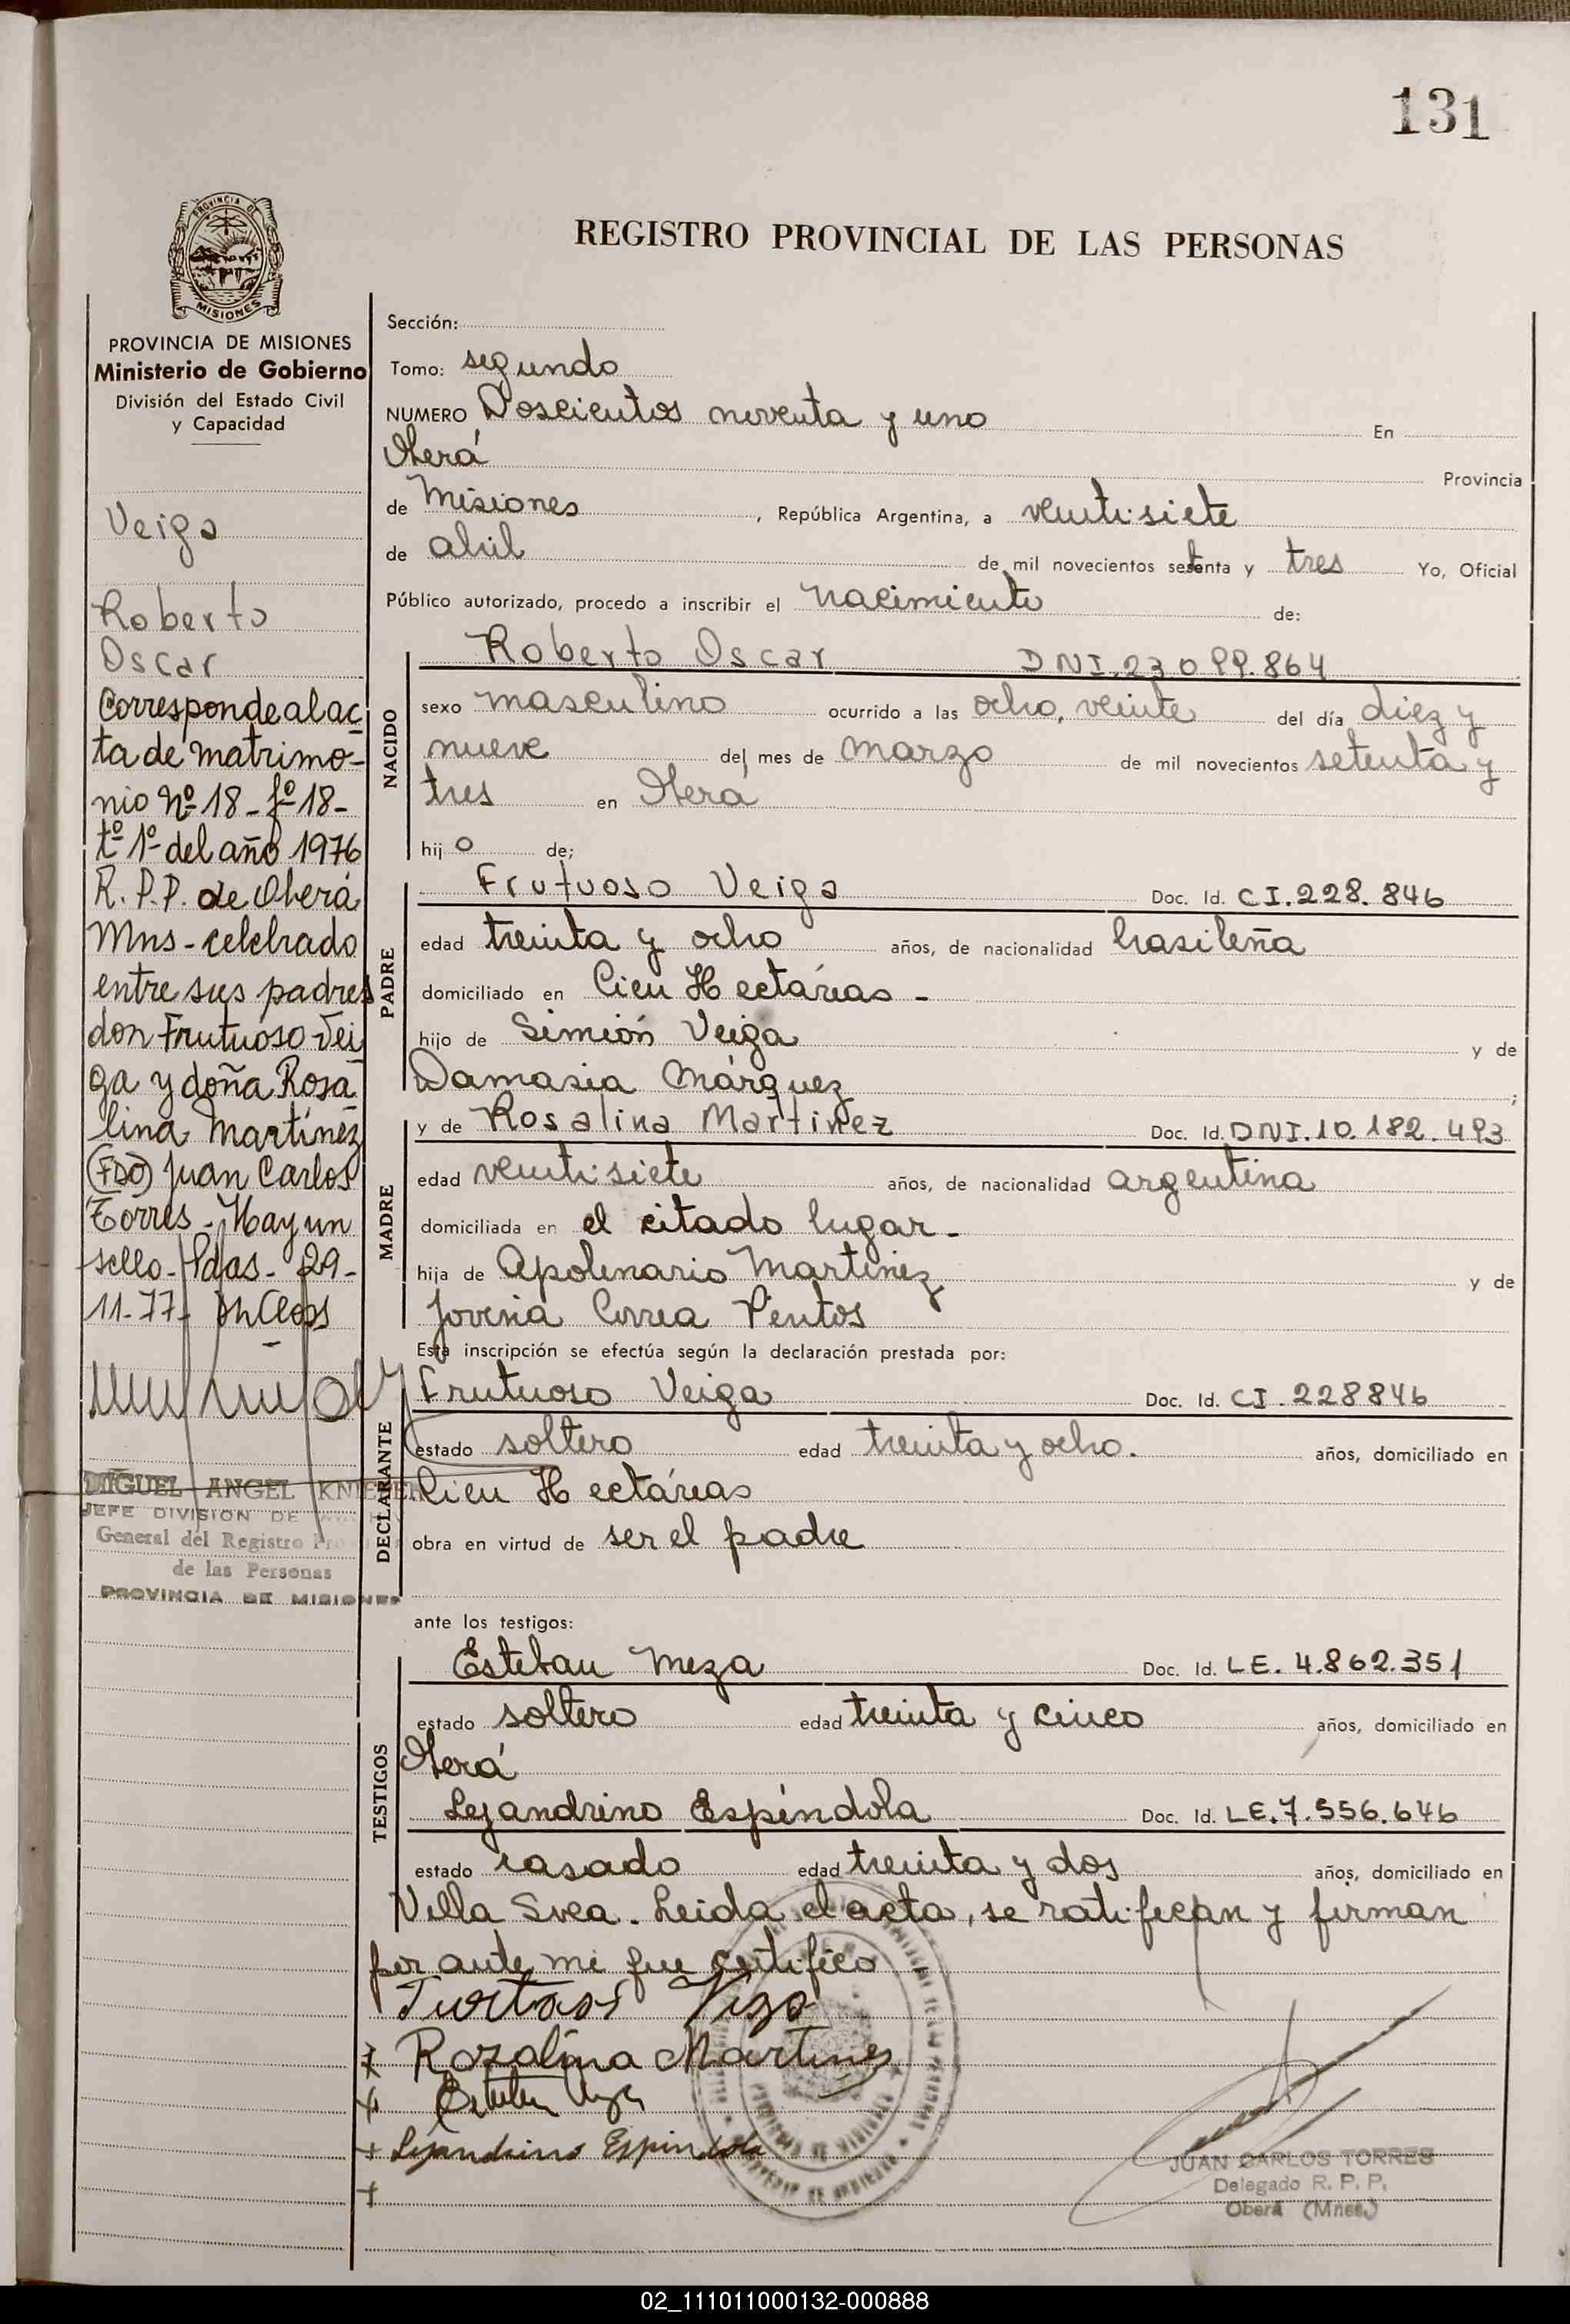 131
PROVINCIA DE
MISIONES
REGISTRO PROVINCIAL DE LAS PERSONAS
PROVINCIA DE MISIONES
Ministerio de Gobierno
División del Estado Civil
y Capacidad
Veiga
Roberto
Oscar
Corresponde al ac
ta de matrimo-
nio Nº 18 - fº 18 -
tº 1º del año 1976
R. P. P. de Oberá
Mns - celebrado
entre sus padres
don Frutuoso Vei
ga y doña Rosa
lina Martínez
(FDO) Juan Carlos
Torres - Hay un
sello - Pdas - 29 -
11-77-
MIGUEL ANGEL
JEFE DIVISION DE
General del Registro
de las Personas
PROVINCIA DE MISIONES
Sección:
Tomo: segundo
NUMERO Doscientos noventa y uno En
Oberá Provincia
de Misiones, República Argentina, a veintisiete
de abril de mil novecientos setenta y tres Yo, Oficial
Público autorizado, procedo a inscribir el nacimiento de:
NACIDO
Roberto Oscar DNI.23.099.864
sexo masculino ocurrido a las ocho, veinte del día diez y
nueve del mes de marzo de mil novecientos setenta y
tres en Oberá
hijo de;
PADRE
Frutuoso Veiga Doc. Id. CI.228.846
edad treinta y ocho años, de nacionalidad brasileña
domiciliado en Cien Hectáreas -
hijo de Simión Veiga y de
Damasia Márquez;
MADRE
y de Rosalina Martinez Doc. Id. DNI.10.182.493
edad veintisiete años, de nacionalidad argentina
domiciliada en el citado lugar -
hija de Apolinario Martinez y de
Jovina Correa Pentos
Esta inscripción se efectúa según la declaración prestada por:
DECLARANTE
Frutuoso Veiga Doc. Id. CI.228846
estado soltero edad treinta y ocho. años, domiciliado en
Cien Hectáreas
obra en virtud de ser el padre
ante los testigos:
TESTIGOS
Esteban Meza Doc. Id. LE. 4.862.351
estado soltero edad treinta y cinco años, domiciliado en
Oberá
Lejandrino Espíndola Doc. Id. LE.7.556.646
estado casado edad treinta y dos años, domiciliado en
Villa Svea. Leida el acta, se ratifican y firman
por ante mi que certifico
Rozalina Martines
Lejandrino Espindola
JUAN CARLOS TORRES
Delegado R. P. P.
Oberá (Mnes.)
02_111011000132-000888